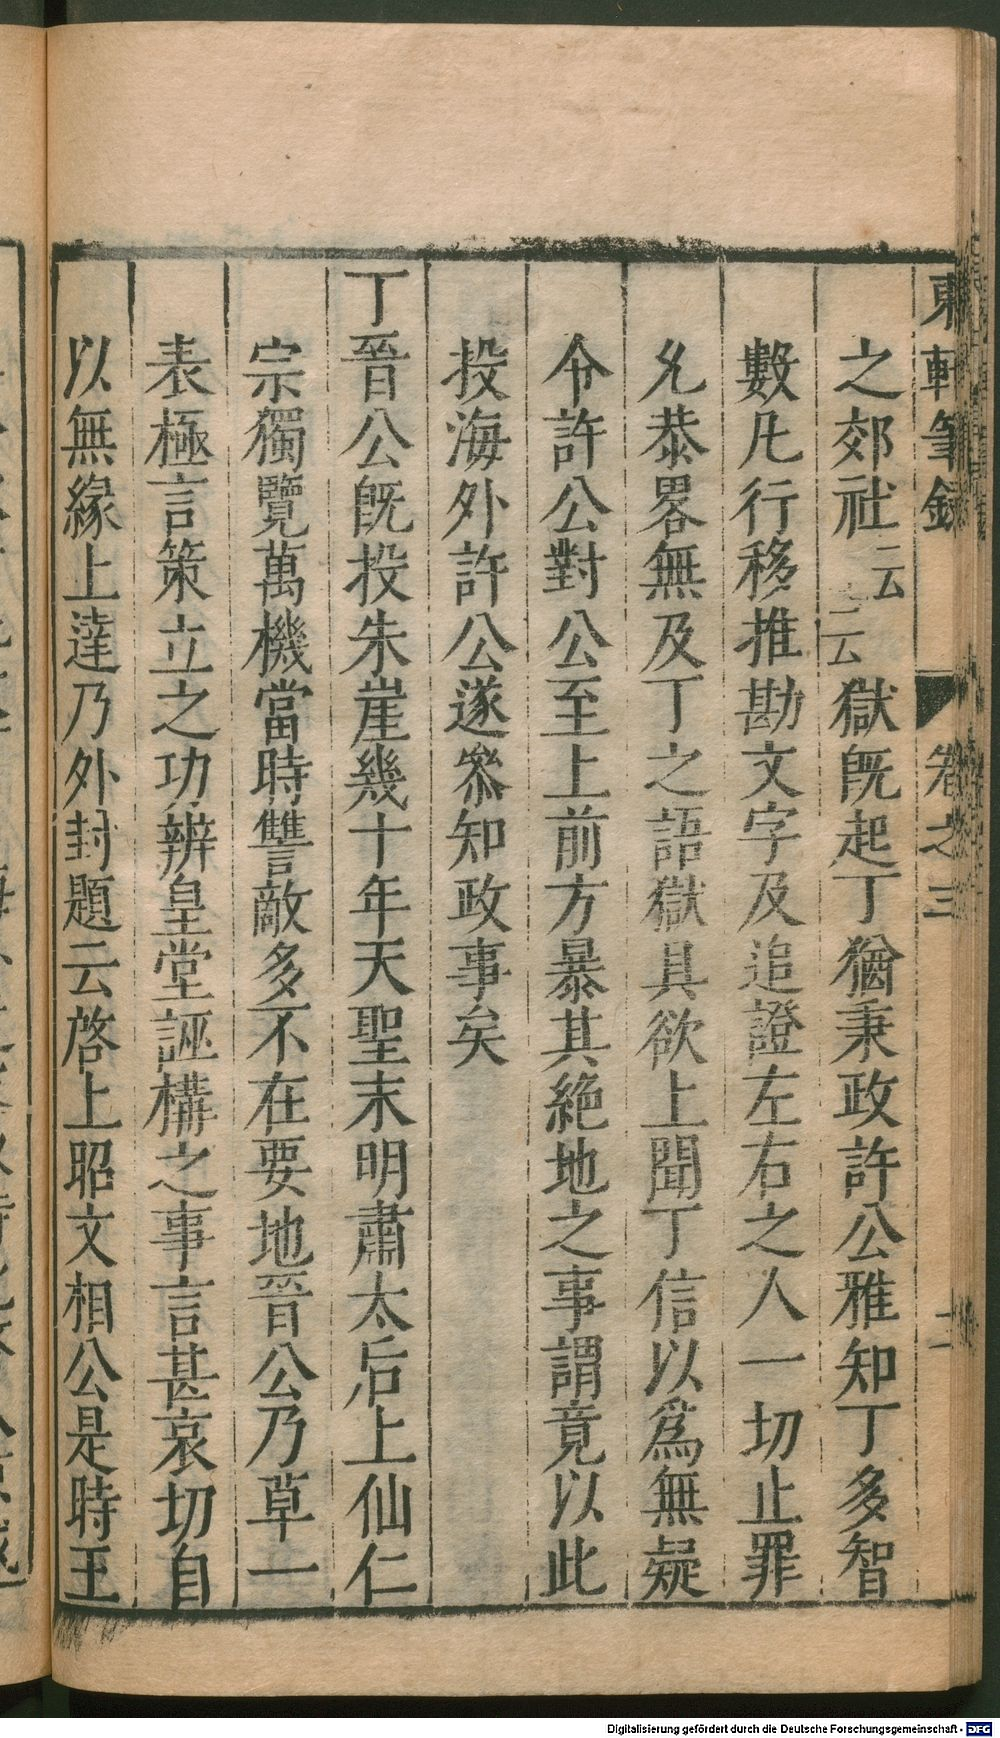 東軒筆錄 卷之三 二
之郊社云云獄旣起丁猶秉政許公雅知丁多智
數凡行移推勘文字及追證左右之人一切止罪
允恭畧無及丁之語獄具欲上聞丁信以爲無疑
令許公對公至上前方暴其絶地之事謂竟以此
投海外許公遂叅知政事矣
丁晉公旣投朱崖幾十年天聖末明肅太后上仙仁
宗獨覽萬機當時讐敵多不在要地晉公乃草一
表極言策立之功辨皇堂誣構之事言甚哀切自
以無緣上達乃外封題云啓上昭文相公是時王
Digitalisierung gefördert durch die Deutsche Forschungsgemeinschaft - DFG